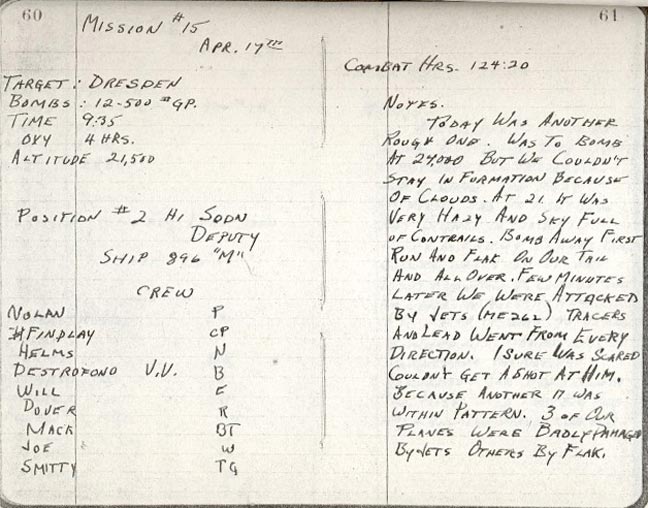 60
Mission #15
Apr. 17th
Target: Dresden
Bombs: 12-500 # GP.
Time 9:35
Oxy 4 Hrs.
Altitude 21,500
Position #2 Hi Sqdn
Deputy
Ship 896 "M"
Crew
Nolan P
Findlay CP
Helms N
Destrofono V.V. B
Will E
Dover R
Mack BT
Joe W
Smitty TG
61
Combat Hrs. 124:20
Notes.
Today Was Another
Rough One. Was To Bomb
At 27,000 But We Couldn't
Stay In Formation Because
Of Clouds. At 21 It Was
Very Hazy And Sky Full
of Contrails. Bomb Away First
Run And Flak On Our Tail
And All Over. Few Minutes
Later We Were Attacked
By Jets (ME262) Tracers
And Lead Went From Every
Direction. I Sure Was Scared
Couldn't Get A Shot At Him.
Because Another 17 Was
Within Pattern. 3 of Our
Planes Were Badly Damaged
By Jets Others By Flak.